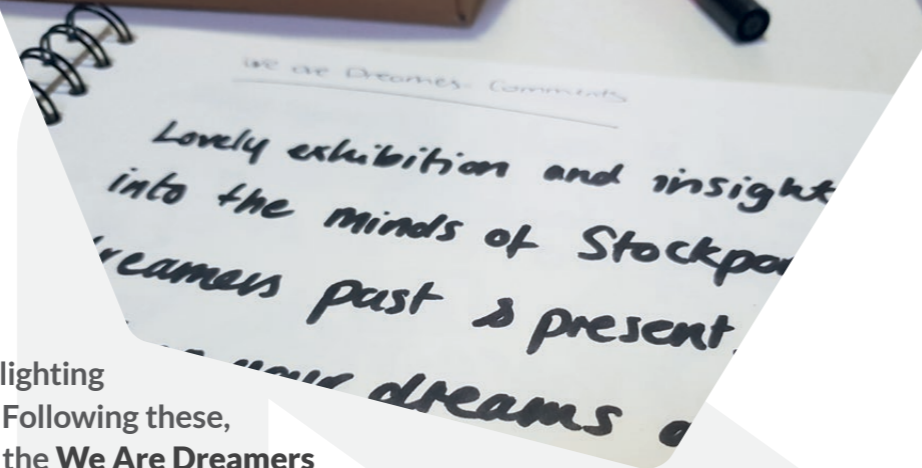 We are Dreamers - Comments
Lovely exhibition and insight
into the minds of Stockpor
dreamers past & present.
your dreams
lighting
Following these,
the We Are Dreamers